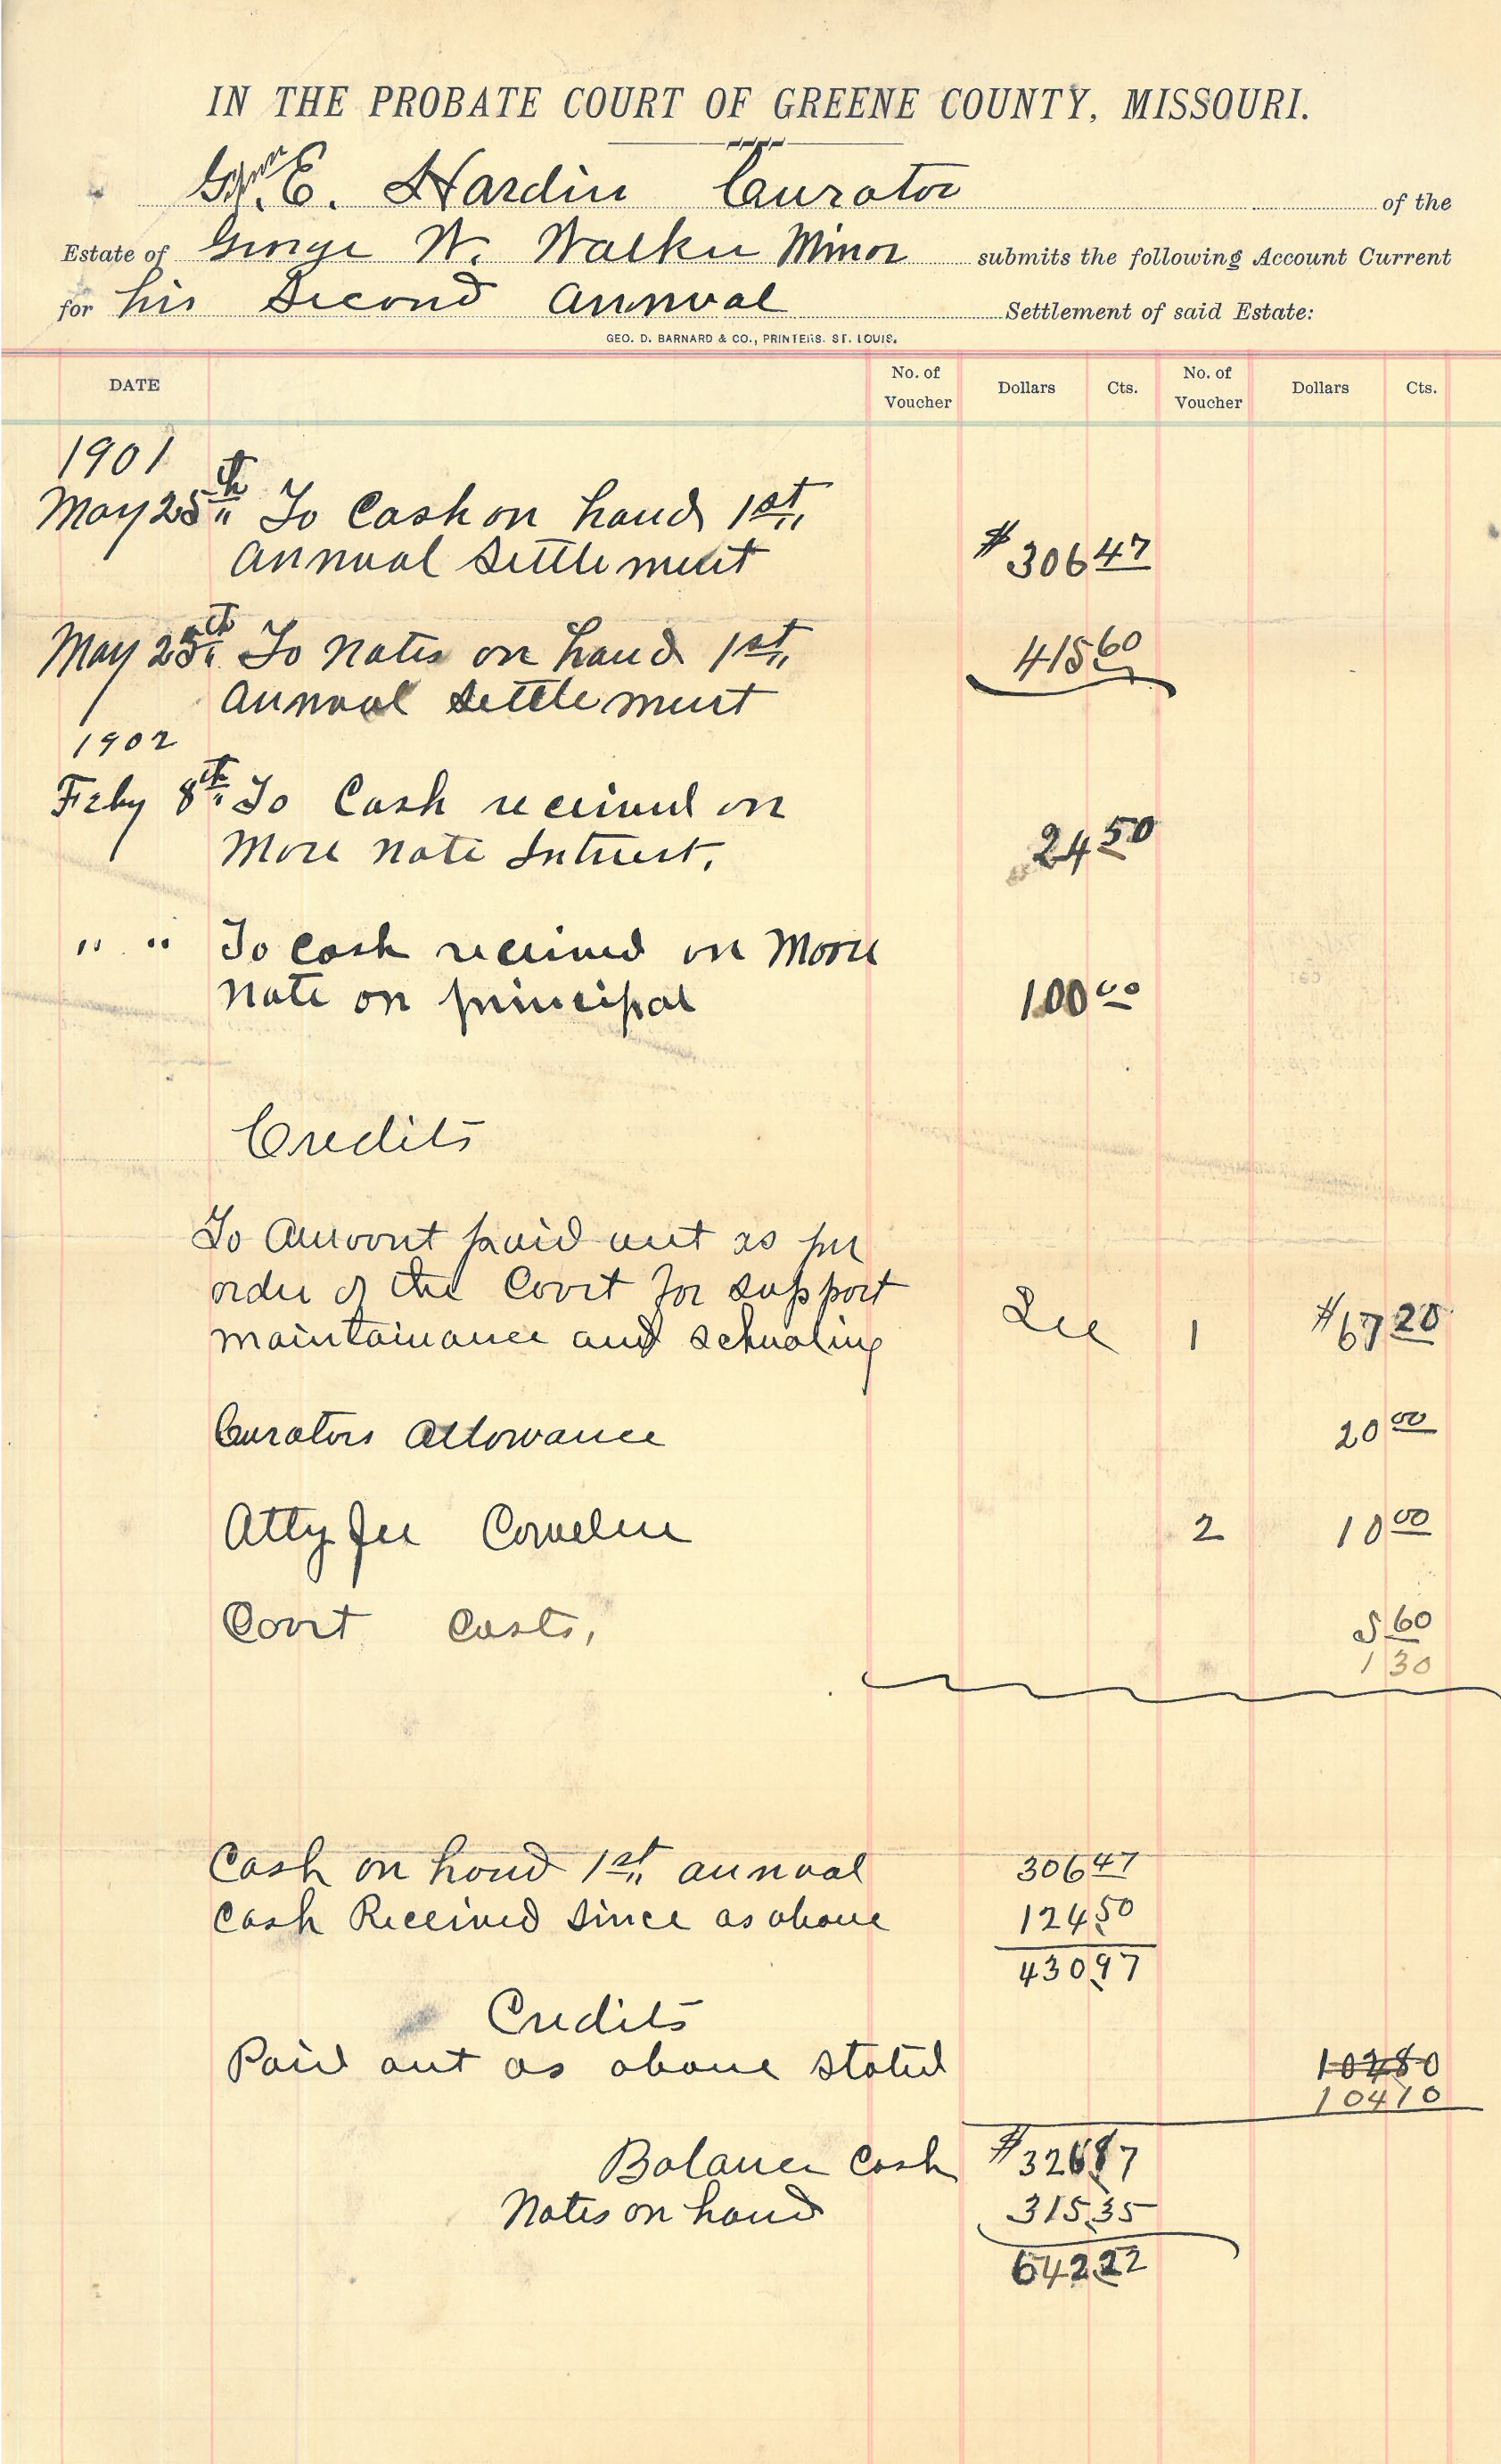 IN THE PROBATE COURT OF GREENE COUNTY, MISSOURI.
E. Hardin Curator of the
Estate of George W. Walker Minor submits the following Account Current
for his Second Annual Settlement of said Estate:
GEO. D. BARNARD & CO., PRINTERS. ST. LOUIS.
DATE No. of Voucher Dollars Cts. No. of Voucher Dollars Cts.
1901
May 25th To Cash on hand 1st
Annual Settlement $306 47
May 25th To Notes on hand 1st 415 60
Annual Settlement
1902
Feby 8th To Cash received on
More Note Interest. 24 50
" " To Cash received on Moore
Note on principal 100 00
Credits
To Amount paid out as per
order of the Court for support
maintainance and schooling See 1 $67 20
Curators Allowance 20 00
Atty fee 2 10 00
Court Costs, 5 60
1 30
Cash on hand 1st annual 306 47
Cash Received since as above 124 50
430 97
Credits
Paid out as above stated 102 80
104 10
Balance Cash $326 87
Notes on hand 315 35
642 22